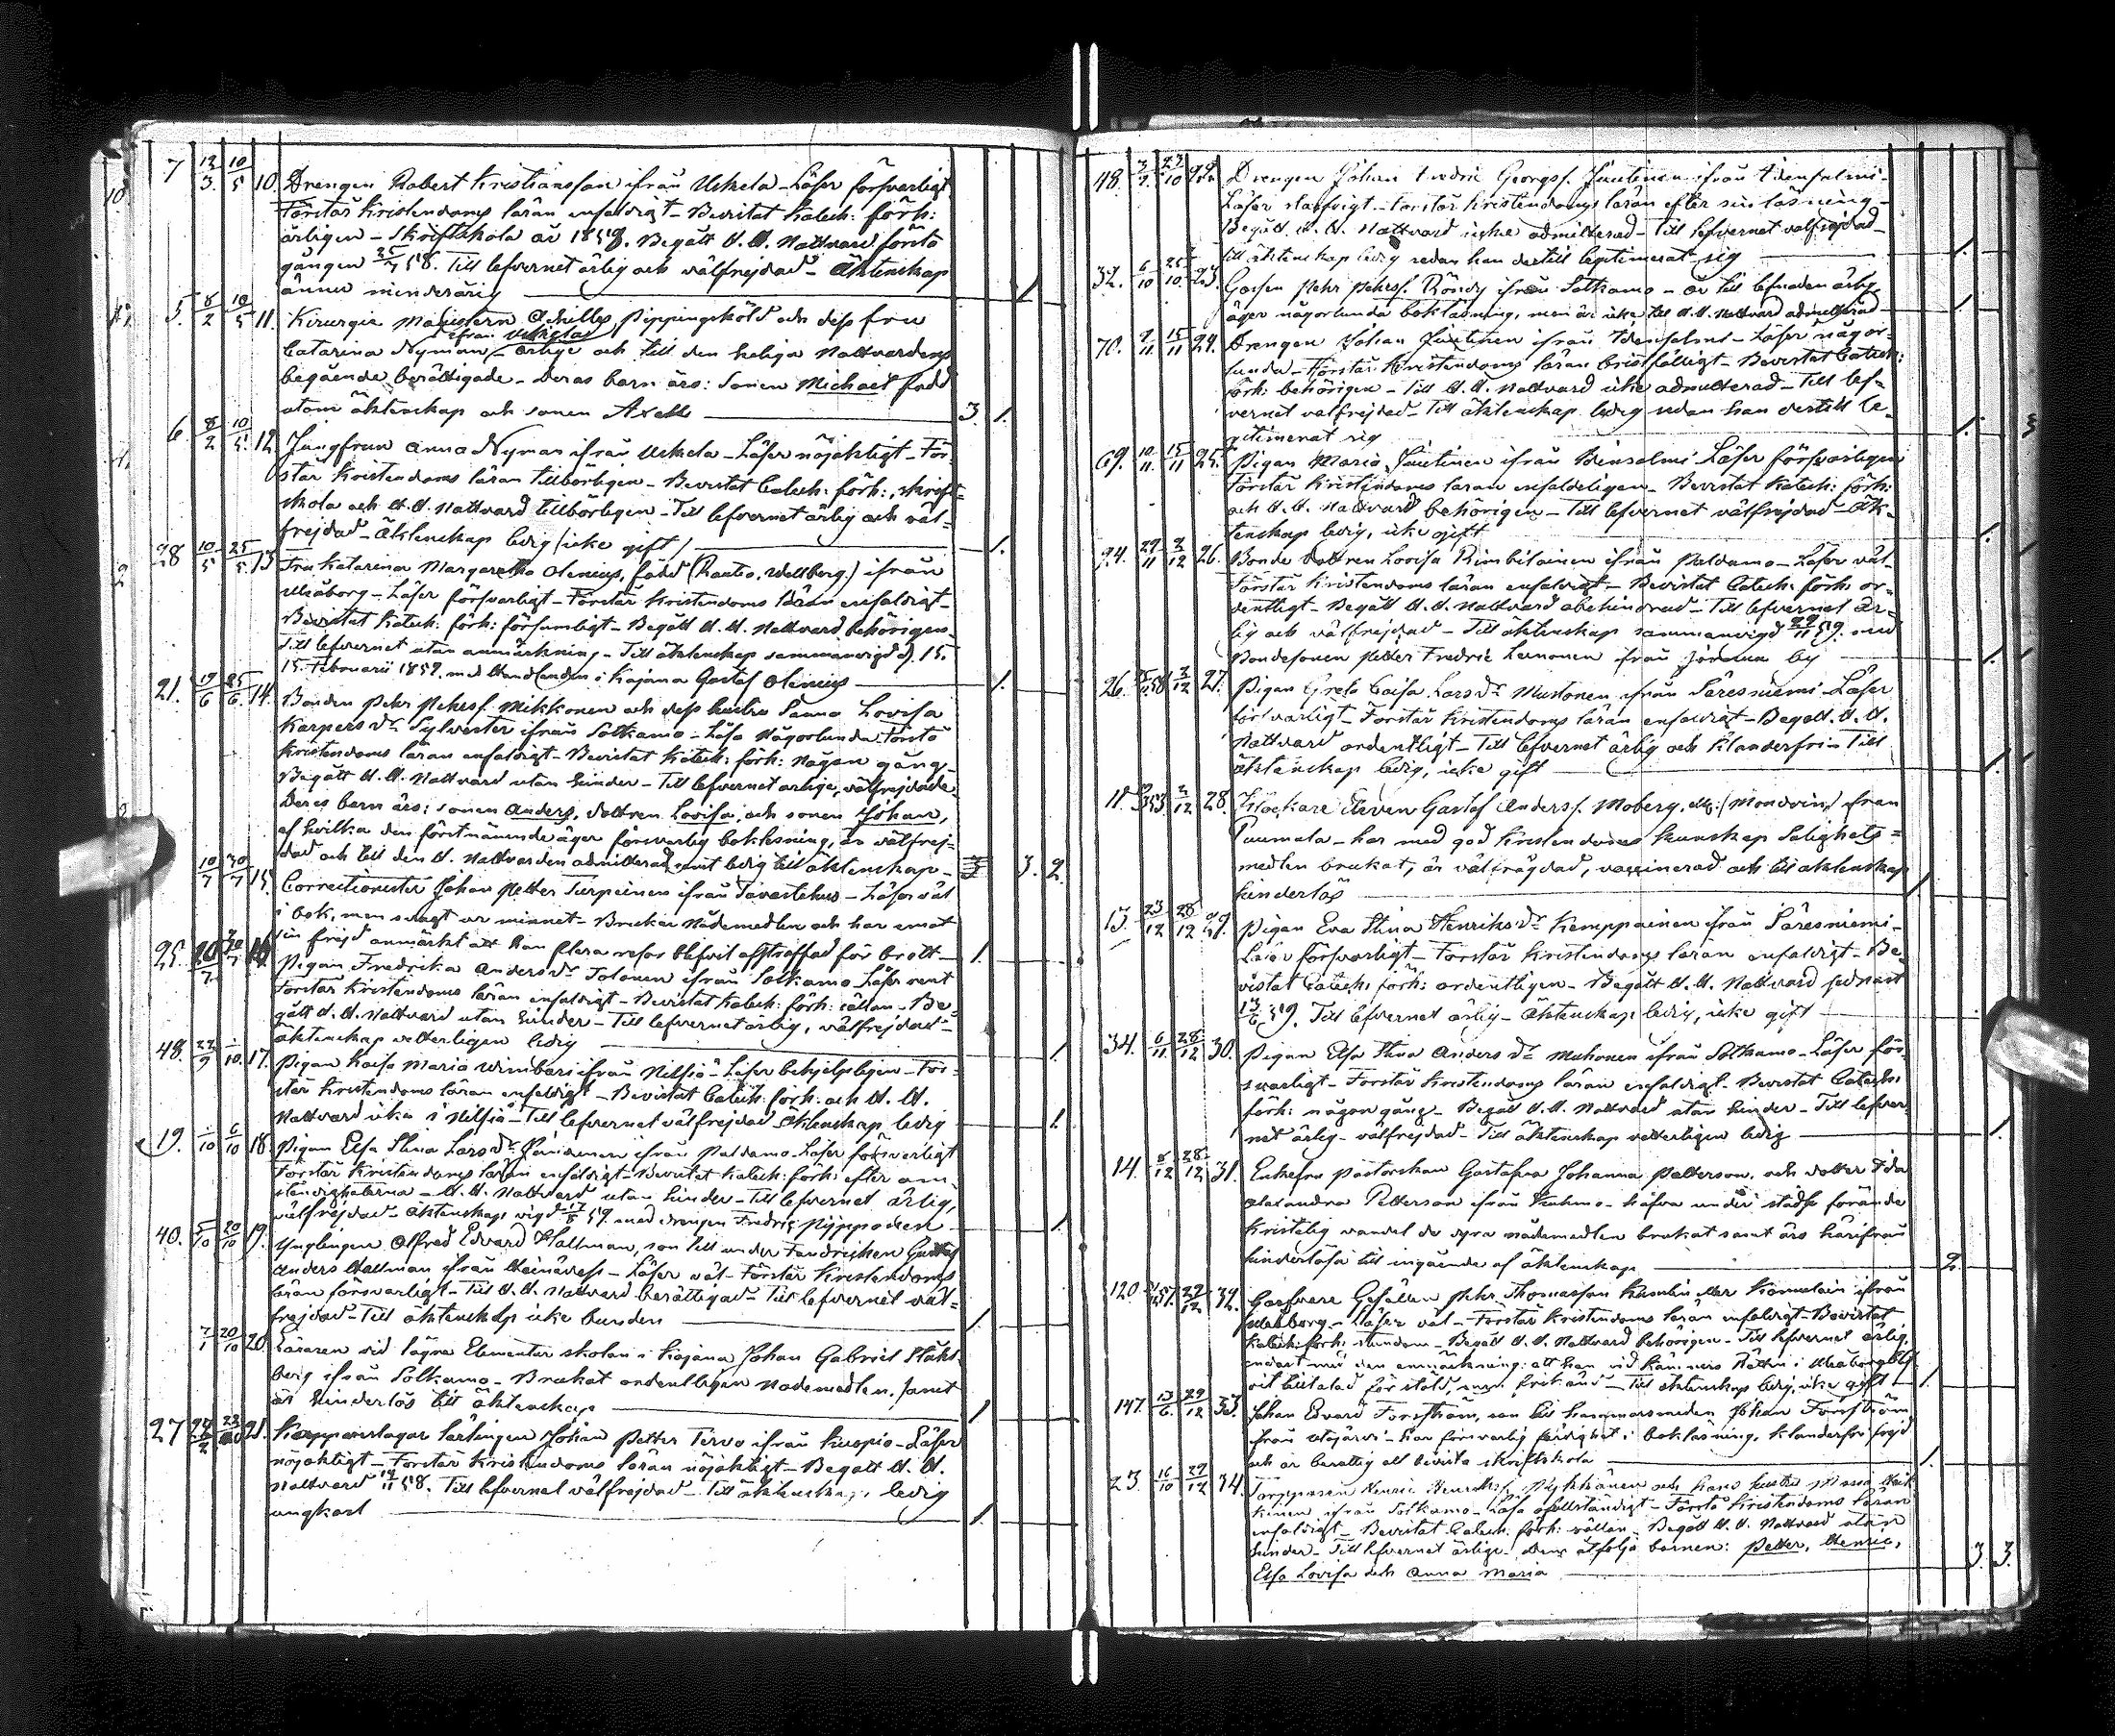 7 12/3 10/5 10. Drengen Robert Kristiansson ifrån Uskela - Läser försvarligt
Förstår Kristendoms läran enfaldigt - Bevistat Katech: förh:
årligen - Skriftskola år 1858. Begått H. H. Nattvard första
gången 25/7 58. Till lefvernet ärlig och välfrejdad - Äktenskap
ännu minderårig 1
5. 8/2 10/5 11. Kirurgie Magistern Achilles Pippingsköld och dess fru
ifrån Uskela
Catarina Nyman - ärlige och till den heliga Nattvardens
begående berättigade - Deras barn äro: Sonen Michael född
utom äktenskap och sonen Axel 3. 1.
6. 8/2 10/5 12. Jungfrun Anna Nyman ifrån Uskela - Läser nöjaktigt - För-
står Kristendoms läran tillbörligen - Bevistat Catech: förh:, skrift-
skola och H. H. Nattvard tillbörligen - Till lefvernet ärlig och väl-
frejdad - Äktenskap ledig (icke gift) 1.
28 10/5 25/5 13 Fru Katarina Margaretha Olenius, född (Wellberg.) ifrån
Uleåborg - Läser försvarligt - Förstår Kristendoms läran enfaldigt -
Bevistat Katech: förh: försumligt - Begått H. H. Nattvard behörigen -
Till lefvernet utan anmärkning - Till äktenskap sammanvigd d. 15.
15. Februarii 1859. med Handlanden i Kajana Gustaf Olenius 1.
21. 19/6 25/6 14. Bonden Pehr Pehrss. Mikkonen och dess hustru Sanna Lovisa
Kaspersdr Sylvester ifrån Sotkamo - Läsa Någorlunda förstå
Kristendoms läran enfaldigt - Bevistat Katech: förh: någon gång -
Begått H. H. Nattvard utan hinder - Till lefvernet ärlige, välfrejdade
Deras barn äro: sonen Anders, dottren Lovisa, och sonen Johan,
af hvilka den förstnämnde äger försvarlig bokläsning, är välfrej-
dad och till den H. Nattvarden admitterad samt ledig till äktenskap - 3. 2.
10/7 30/7 15. Correctionisten Johan Petter Turpeinen ifrån Tavastehus - Läser väl
i bok, men svagt ur minnet - Brukar Nådemedlen och har emot
sin frejd anmärkt att han flera resor blifvit afstraffad för brott - 1.
25. 20/7 30/7 16 Pigan Fredrika Andersdr Tolonen ifrån Sotkamo - Läser rent
Förstår Kristendoms läran enfaldigt - Bevistat Katech: förh: sällan - Be-
gått H. H. Nattvard utan hinder - Till lefvernet ärlig, välfrejdad -
äktenskap vetterligen ledig 1.
48. 22/9 1/10 17. Pigan Kaisa Maria Wimbari ifrån Nilsiä - Läser behjelpligen - För-
står Kristendoms läran enfaldigt - Bevistat Catech: förh: och H. H.
Nattvard icke i Nilsiä - Till lefvernet välfrejdad Äktenskap ledig 1.
19. 1/10 6/10 18. Pigan Elsa Stina Larsdr ifrån Paldamo - Läser försvarligt
Förstår Kristendoms läran enfaldigt - Bevistat Katech: förh: efter om-
ständigheterna - H. H. Nattvard utan hinder - Till lefvernet ärlig,
välfrejdad - äktenskap vigd 17/8 59. med drengen Fredric Pyppönen 1
40. 5/10 20/10 19. Ynglingen Alfred Edvard Hallman, son till under Fändriken Gustaf
Anders Hallman ifrån Heinävesi - Läser väl - Förstår Kristendoms
läran försvarligt - Till H. H. Nattvard berättigad - Till lefvernet väl-
frejdad - Till äktenskap icke bunden 1
7/7 20/10 20. Läraren vid lägre Elementar skolan i Kajana Johan Gabriel Ståhl-
berg ifrån Sotkamo - Brukat ordentligen Nådemedlen, samt
är hinderlös till äktenskap 1
27 21. Kopparslagar lärlingen Johan Petter Tervo ifrån Kuopio - Läser
nöjaktigt - Förstår Kristendoms läran nöjaktigt - Begått H. H.
Nattvard 14/11 58. Till lefvernet välfrejdad - Till äktenskap ledig
ungkarl 1.
48. 3/9 23/10 22. Drengen Johan Fredric Georgss. Juutinen ifrån Idensalmi -
Läser slarfvigt - Förstår Kristendoms läran efter sin läsning -
Begått H. H. Nattvard icke admitterad - Till lefvernet välfrejdad -
till äktenskap ledig sedan han dertill legitimerat sig 1.
32. 6/10 25/10 23. Gossen Pehr Pehrss. Röndy ifrån Sotkamo - är till lefnaden ärlig,
äger någorlunda bokläsning, men är icke till H. H. Nattvard admitterad - 1.
70. 9/11 15/11 24. Drengen Johan Juutinen ifrån Idensalmi - Läser någor-
lunda - Förstår Kristendoms läran bristfälligt - Bevistat Catech:
förh: behörigen - Till H. H. Nattvard icke admitterad - Till lef-
vernet välfrejdad - Till äktenskap ledig sedan han dertill le-
gitimerat sig 1.
69. 10/11 15/11 25. Pigan Maria Juutinen ifrån Idensalmi Läser försvarligen
Förstår Kristendoms läran enfaldeligen - Bevistat Katech: förh:
och H. H. Nattvard behörigen - Till lefvernet välfrejdad - Äk-
tenskap ledig, icke gift 1.
94. 29/11 2/12 26. Bonde dottren Lovisa Rimbiläinen ifrån Paldamo - Läser väl -
Förstår Kristendoms läran enfaldigt - Bevistat Catech: förh: or-
dentligt - Begått H. H. Nattvard obehindrad - Till lefvernet är-
lig och välfrejdad - Till äktenskap sammanvigd 29/11 59. med
Bondesonen Petter Fredric Leinonen från Jormua by 1.
26. 2/12 27. Pigan Greta Caisa Larsdr Mustonen ifrån Säresniemi Läser
försvarligt - Förstår Kristendoms läran enfaldigt - Begått H. H.
Nattvard ordentligt - Till lefvernet ärlig och klanderfri - Till
äktenskap ledig, icke gift 1.
11. 2/12 28. Klockare Eleven Gustaf Anderss. Moberg, från
Puumala - har med god Kristendoms kunskap Salighets-
medlen brukat, är välfrägdad, vaccinerad och till äktenskap
hinderlös 1
15. 23/12 28/12 29. Pigan Eva Stina Henriksdr Kemppainen ifrån Säresniemi -
Läser försvarligt - Förstår Kristendoms läran enfaldigt - Be-
vistat Catech: förh: ordentligen - Begått H. H. Nattvard sednast
59. Till lefvernet ärlig - Äktenskap ledig, icke gift
34. 6/11 28/12 30. Pigan Elsa Stina Andersdr Muhonen ifrån Sotkamo - Läser för-
svarligt - Förstår Kristendoms läran enfaldigt - Bevistat Catech:
förh: någon gång - Begått H. H. Nattvard utan hinder - Till lefver-
net ärlig - välfrejdad - Till äktenskap vetterligen ledig 1.
14. 8/12 28/12 31. Enkefru Pastorskan Gustafva Johanna Petterson, och dotter Ida
Alexandra Petterson ifrån Kuhmo - hafva under städse förande
Kristelig vandel de dyra nådemedlen brukat samt äro härifrån
hinderlösa till ingående af äktenskap 2.
120. 29/12 32. Garfvare Gesällen Pehr Thomasson ifrån
Uleåborg - Läser väl - Förstår Kristendoms läran enfaldigt - Bevistat
Katech: förh: stundom - Begått H. H. Nattvard behörigen - Till lefvernet ärlig,
endast med den anmärkning: att han vid Kämners Rätten i Uleåborg blif-
vit tilltalad för stöld, men frikänd - Till äktenskap ledig, icke gift 1
147. 13/6 29/12 33. Johan Edvard Forsström, son till hammarsmeden Johan Forsström
från - har försvarlig färdighet i bokläsning, klanderfri frejd
och är berättig att bevista skriftskola 1.
23. 16/10 29/12 34. Torpparen Henric Henrikss. och hans hustru Maria
ifrån Sotkamo - Läsa ofullständigt - Förstå Kristendoms läran
enfaldigt - Bevistat Catech: förh: sällan - Begått H. H. Nattvard utan
hinder - Till lefvernet ärlige. Dem åtfölja barnen: Petter, Henric,
Elsa Lovisa och Anna Maria 3. 3.